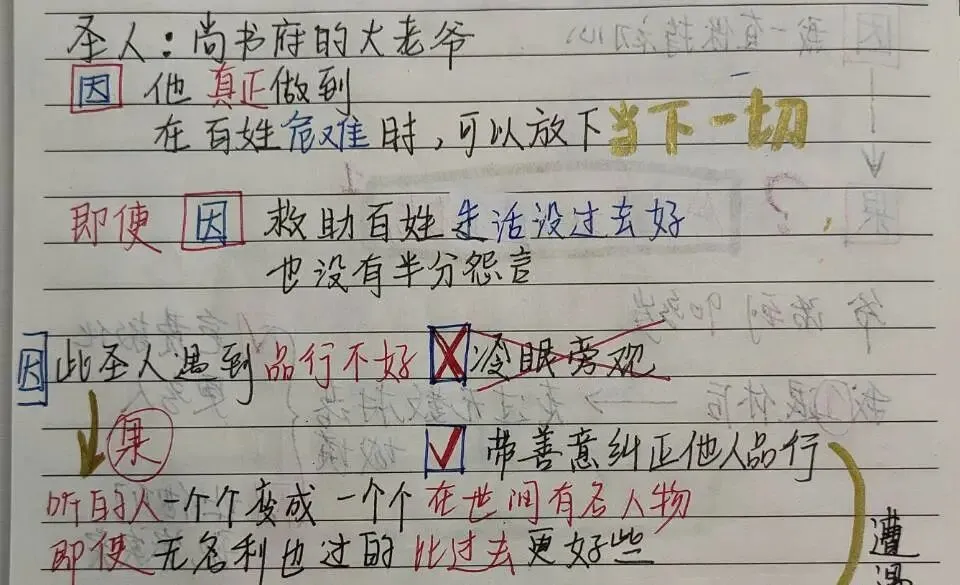 圣人：尚书府的大老爷
因 他真正做到
在百姓危难时，可以放下当下一切
即使 因 救助百姓生活没过去好
也没有半分怨言
因 此圣人遇到品行不好 冷眼旁观
果 带善意纠正他人品行
听的人一个个变成一个个在世间有名人物
即使无名利也过的比过去更好些
遭